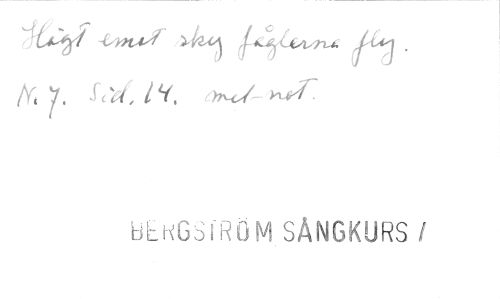 Högt emot sky fåglarna fly.
N. 7. Sid. 14. mel-not.
BERGSTRÖM SÅNGKURS /